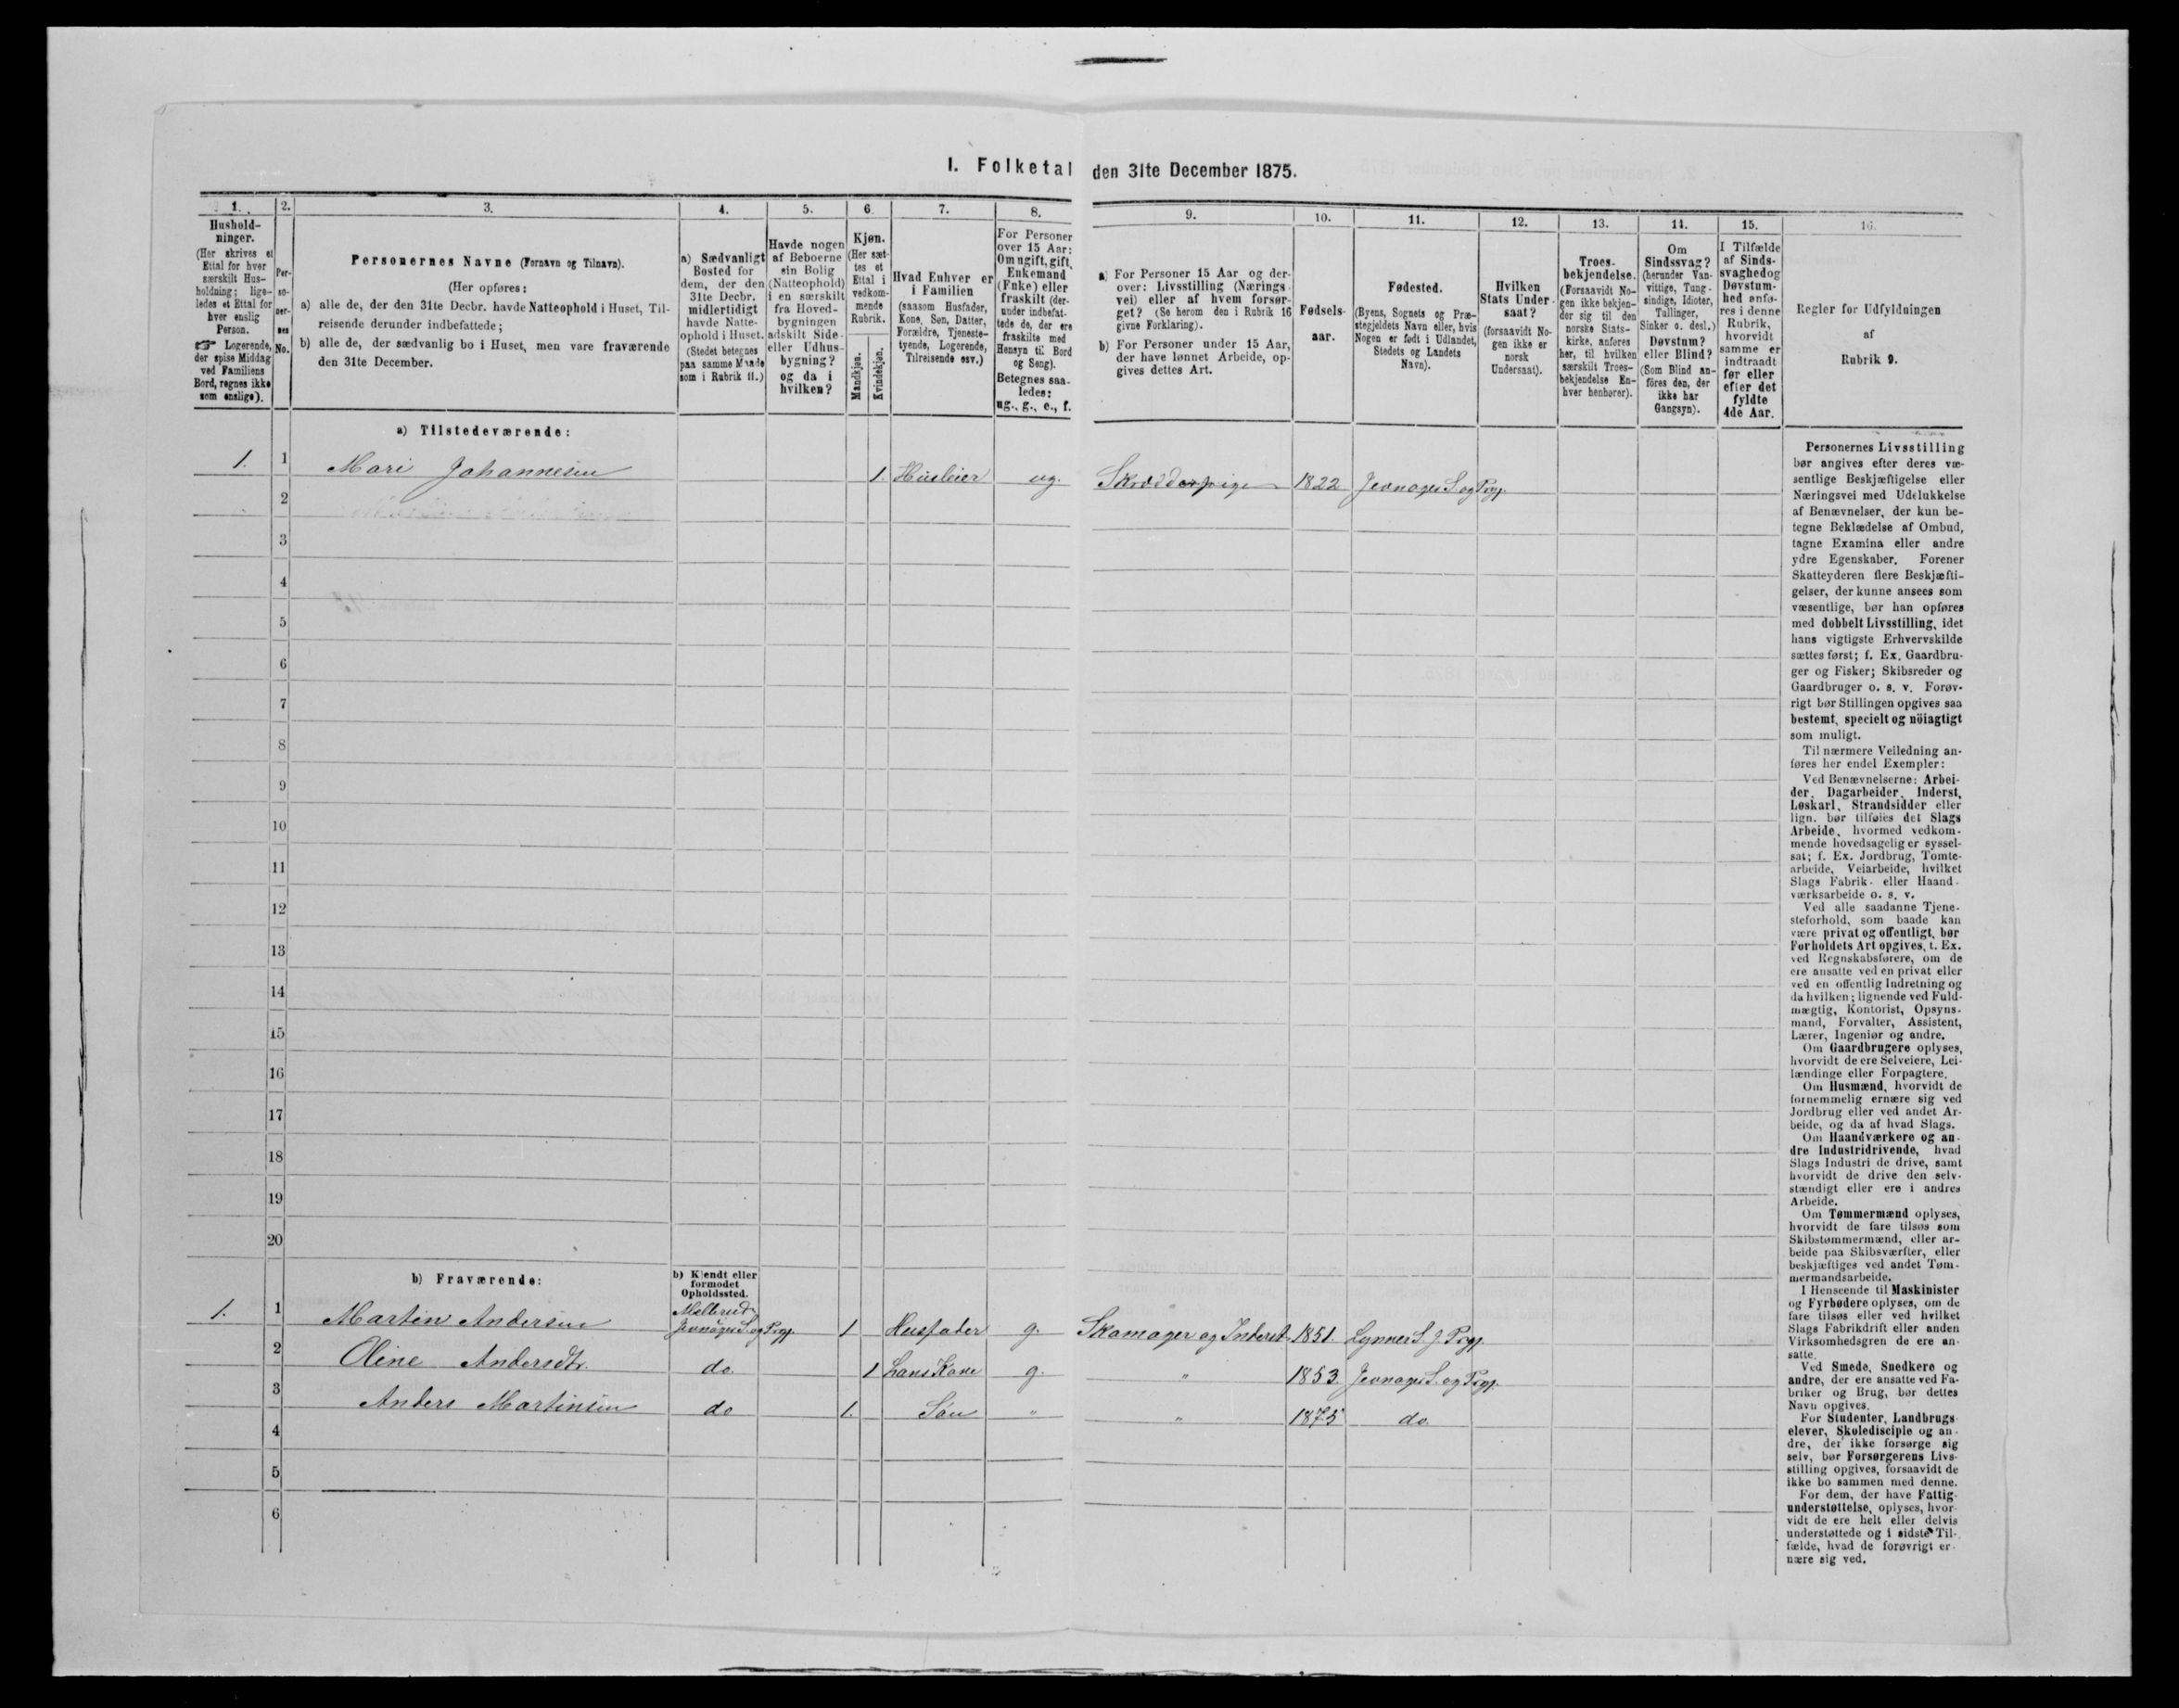 I. Folketal den 31te December 1875.
1.
Hushold-
ninger.
(Her skrives et
Ettal for hver
særskilt Hus-
holdning; lige-
ledes et Ettal for
hver enslig
Person.
☞ Logerende,
der spise Middag
ved Familiens
Bord, regnes ikke
som enslige).
2.
Per-
so-
ner-
nes
No.
3.
Personernes Navne (Fornavn og Tilnavn).
(Her opføres:
a) alle de, der den 31te Decbr. havde Natteophold i Huset, Til-
reisende derunder indbefattede;
b) alle de, der sædvanlig bo i Huset, men vare fraværende
den 31te December.
4.
a) Sædvanligt
Bosted for
dem, der den
31te Decbr.
midlertidigt
havde Natte-
ophold i Huset.
(Stedet betegnes
paa samme Maade
som i Rubrik 11.)
5.
Havde nogen
af Beboerne
sin Bolig
(Natteophold)
i en særskilt
fra Hoved-
bygningen
adskilt Side-
eller Udhus-
bygning?
og da i
hvilken?
6.
Kjøn.
(Her sæt-
tes et
Ettal i
vedkom-
mende
Rubrik.
Mandkjøn.
Kvindekjøn.
7.
Hvad Enhver er
i Familien
(saasom Husfader,
Kone, Søn, Datter,
Forældre, Tjeneste-
tyende, Logerende,
Tilreisende osv.)
8.
For Personer
over 15 Aar:
Om ugift, gift,
Enkemand
(Enke) eller
fraskilt (der-
under indbefat-
tede de, der ere
fraskilte med
Hensyn til Bord
og Seng).
Betegnes saa-
ledes:
ug., g., e., f.
9.
a) For Personer 15 Aar og der-
over: Livsstilling (Nærings-
vei) eller af hvem forsør-
get? (Se herom den i Rubrik 16
givne Forklaring).
b) For Personer under 15 Aar,
der have lønnet Arbeide, op-
gives dettes Art.
10.
Fødsels-
aar.
11.
Fødested.
(Byens, Sognets og Præ-
stegjeldets Navn eller, hvis
Nogen er født i Udlandet,
Stedets og Landets
Navn).
12.
Hvilken
Stats Under-
saat?
(forsaavidt No-
gen ikke er
norsk
Undersaat).
13.
Troes-
bekjendelse.
(Forsaavidt No-
gen ikke bekjen-
der sig til den
norske Stats-
kirke, anføres
her, til hvilken
særskilt Troes-
bekjendelse En-
hver henhører).
14.
Om
Sindssvag?
(herunder Van-
vittige, Tung-
sindige, Idioter,
Tullinger,
Sinker o. desl.)
Døvstum?
eller Blind?
(Som Blind an-
føres den, der
ikke har
Gangsyn).
15.
I Tilfælde
af Sinds-
svaghed og
Døvstum-
hed anfø-
res i denne
Rubrik,
hvorvidt
samme er
indtraadt
før eller
efter det
fyldte
4de Aar.
16.
Regler for Udfyldningen
af
Rubrik 9.
a) Tilstedeværende:
1. 1 Mari Johannesen 1. Husleier ug. 1822 Jevnager S. og Pgj.
2
3
4
5
6
7
8
9
10
11
12
13
14
15
16
17
18
19
20
b) Fraværende:
b) Kjendt eller
formodet
Opholdssted.
1. 1 Martin Andersen Jevnager S. og Pgj. 1 Husfader g. Skomager og Inderst 1851. Lynner S. J. Pgj.
2 Oline Andersdtr. do. 1 hans Kone g. " 1853. Jevnager S. og Pgj.
3 Anders Martinsen do 1. Søn " " 1875 do.
4
5
6
Personernes Livsstilling
bør angives efter deres væ-
sentlige Beskjæftigelse eller
Næringsvei med Udelukkelse
af Benævnelser, der kun be-
tegne Beklædelse af Ombud,
tagne Examina eller andre
ydre Egenskaber. Forener
Skatteyderen flere Beskjæfti-
gelser, der kunne ansees som
væsentlige, bør han opføres
med dobbelt Livsstilling, idet
hans vigtigste Erhvervskilde
sættes først; f. Ex. Gaardbru-
ger og Fisker; Skibsreder og
Gaardbruger o. s. v. Forøv-
rigt bør Stillingen opgives saa
bestemt, specielt og nöiagtigt
som muligt.
Til nærmere Veiledning an-
føres her endel Exempler:
Ved Benævnelserne: Arbei-
der, Dagarbeider, Inderst,
Løskarl, Strandsidder eller
lign. bør tilføies det Slags
Arbeide, hvormed vedkom-
mende hovedsagelig er syssel-
sat; f. Ex. Jordbrug, Tomte-
arbeide, Veiarbeide, hvilket
Slags Fabrik- eller Haand-
værksarbeide o. s. v.
Ved alle saadanne Tjene-
steforhold, som baade kan
være privat og offentligt, bør
Forholdets Art opgives, t. Ex.
ved Regnskabsførere, om de
ere ansatte ved en privat eller
ved en offentlig Indretning og
da hvilken; lignende ved Fuld-
mægtig, Kontorist, Opsyns-
mand, Forvalter, Assistent,
Lærer, Ingeniør og andre.
Om Gaardbrugere oplyses,
hvorvidt de ere Selveiere, Lei-
lændinge eller Forpagtere.
Om Husmænd, hvorvidt de
fornemmelig ernære sig ved
Jordbrug eller ved andet Ar-
beide, og da af hvad Slags.
Om Haandværkere og an-
dre Industridrivende, hvad
Slags Industri de drive, samt
hvorvidt de drive den selv-
stændigt eller ere i andres
Arbeide.
Om Tømmermænd oplyses,
hvorvidt de fare tilsøs som
Skibstømmermænd, eller ar-
beide paa Skibsværfter, eller
beskjæftiges ved andet Tøm-
mermandsarbeide.
I Henseende til Maskinister
og Fyrbødere oplyses, om de
fare tilsøs eller ved hvilket
Slags Fabrikdrift eller anden
Virksomhedsgren de ere an-
satte.
Ved Smede, Snedkere og
andre, der ere ansatte ved Fa-
briker og Brug, bør dettes
Navn opgives.
For Studenter, Landbrugs-
elever, Skoledisciple og an-
dre, der ikke forsørge sig
selv, bør Forsørgerens Livs-
stilling opgives, forsaavidt de
ikke bo sammen med denne.
For dem, der have Fattig-
understøttelse, oplyses, hvor-
vidt de ere helt eller delvis
understøttede og i sidste Til-
fælde, hvad de forøvrigt er-
nære sig ved.